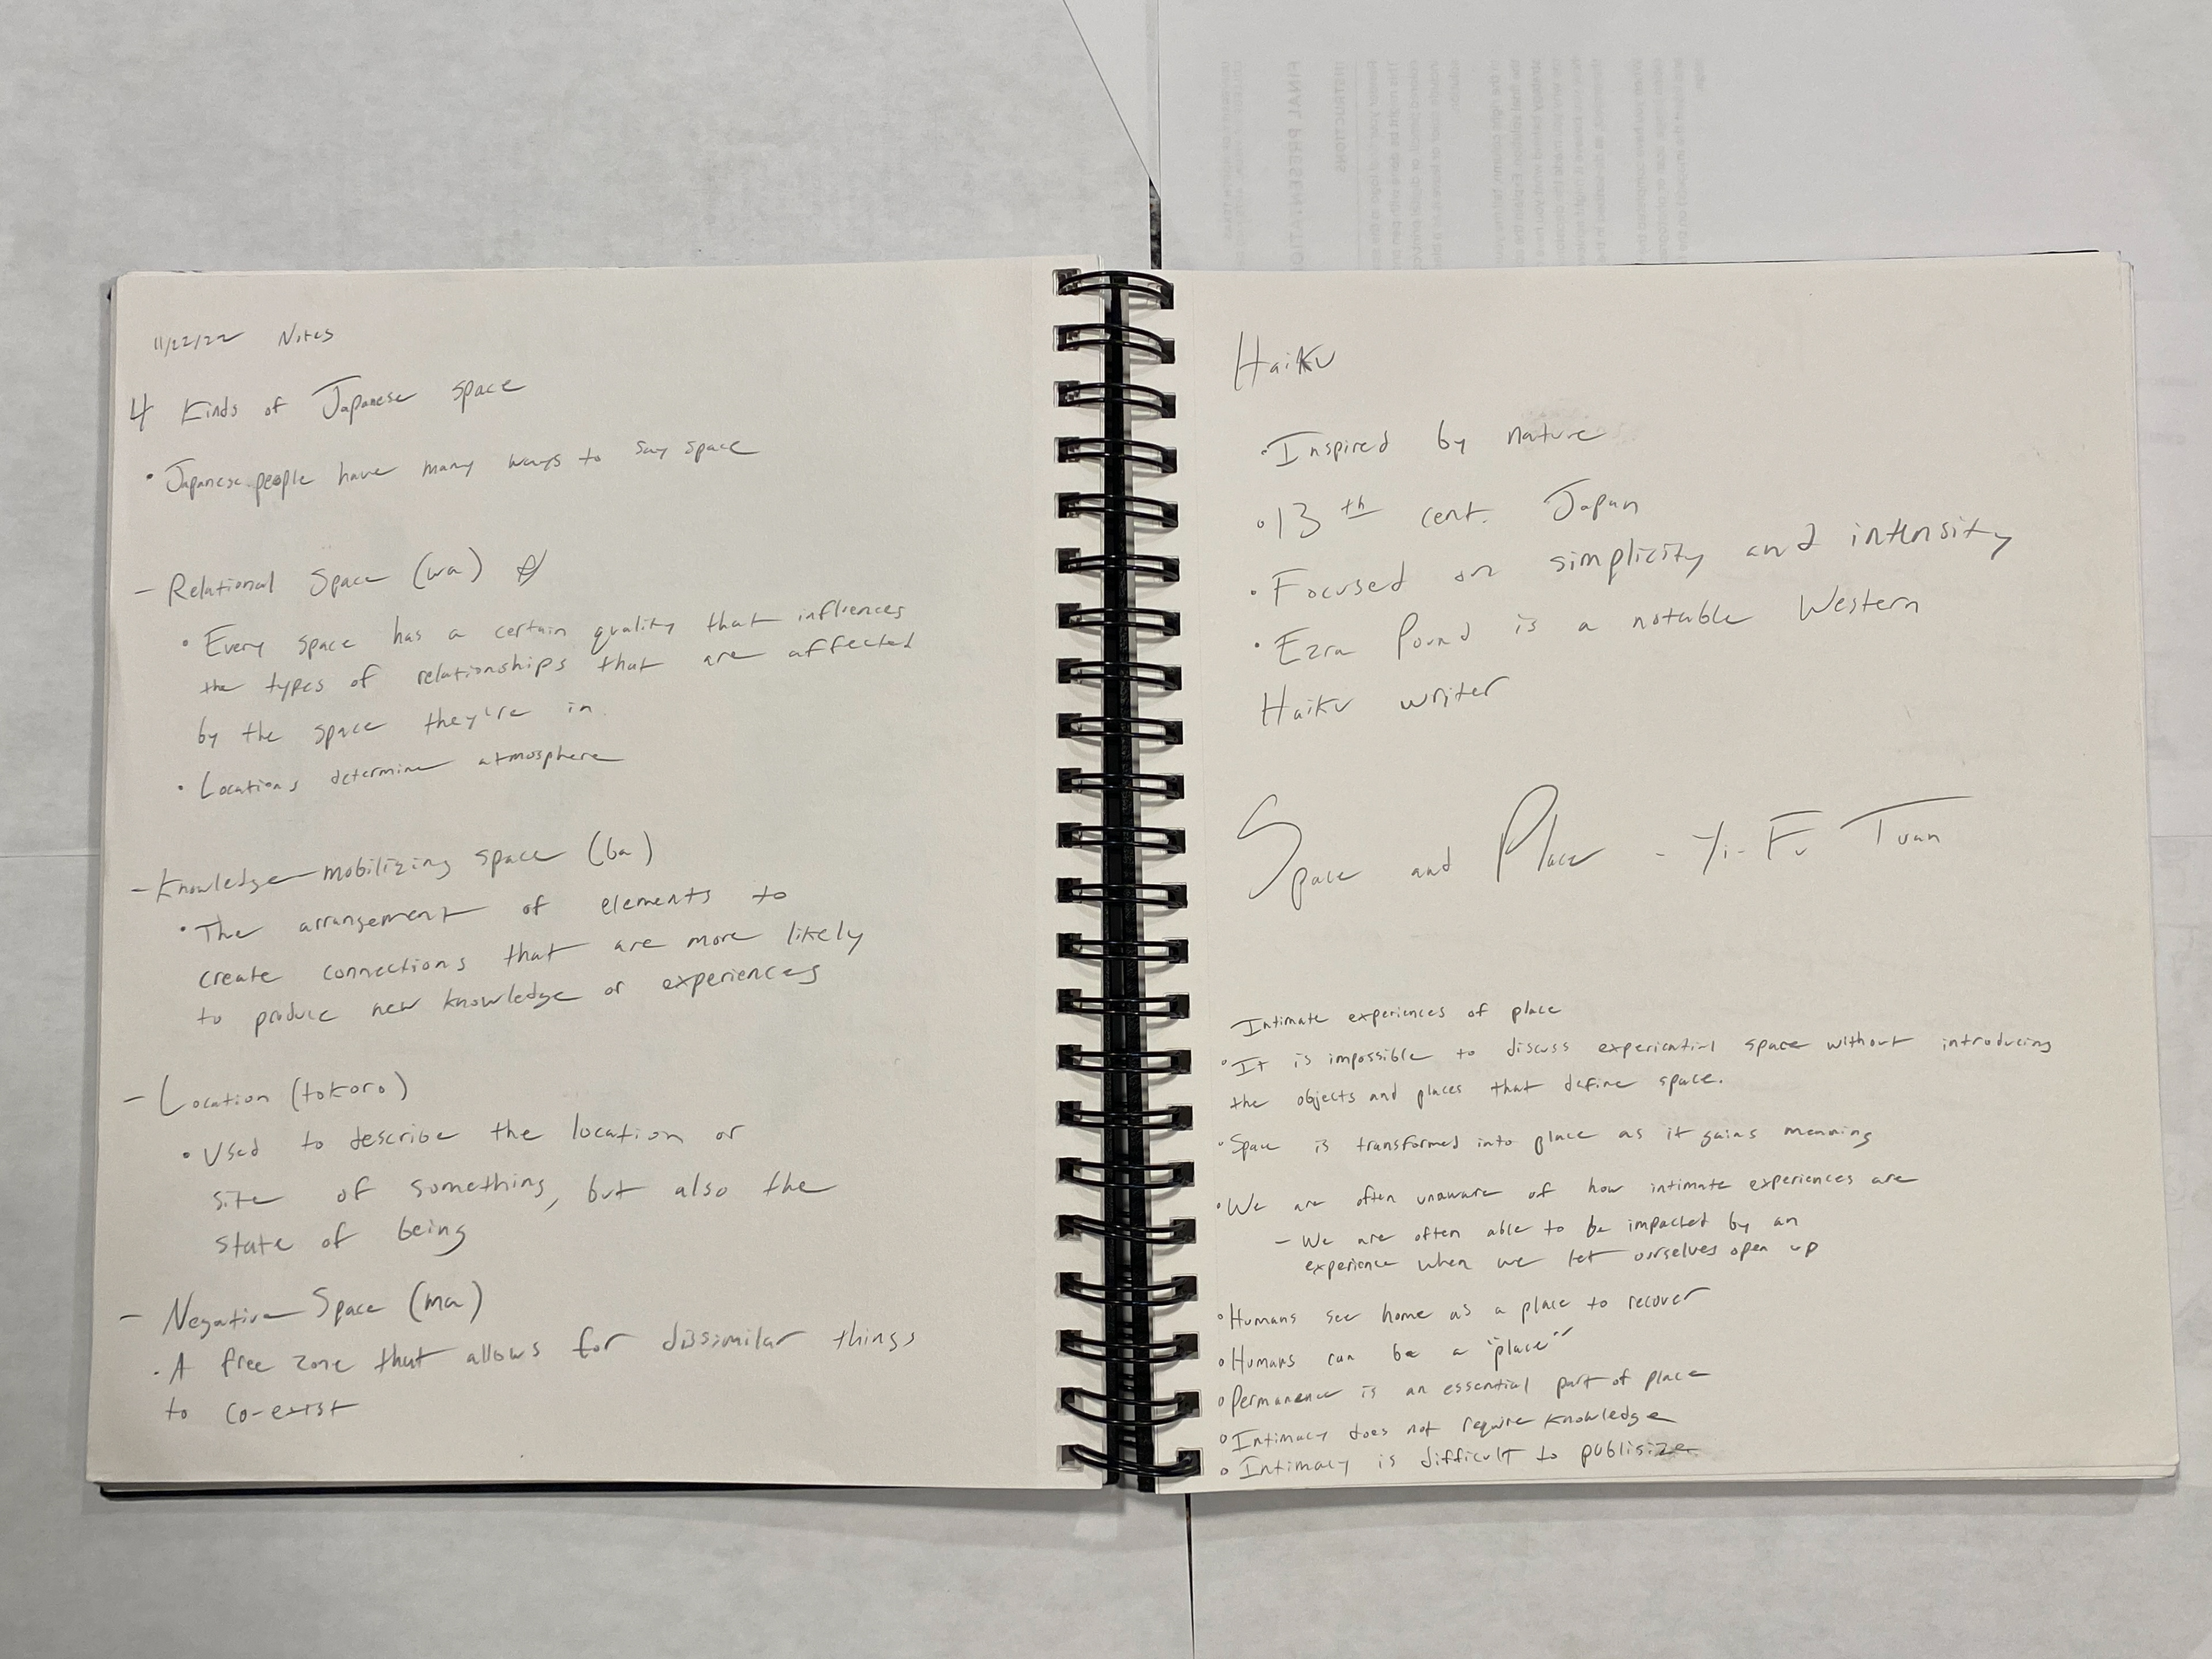 11/22/22 Notes
4 Kinds of Japanese space
• Japanese people have many ways to say space
- Relational Space (wa) ☆
• Every space has a certain quality that influences
the types of relationships that are affected
by the space they're in.
• Locations determine atmosphere
- Knowledge-mobilizing space (ba)
• The arrangement of elements to
create connections that are more likely
to produce new knowledge or experiences
- Location (tokoro)
• Used to describe the location or
site of something, but also the
state of being
- Negative Space (ma)
• A free zone that allows for dissimilar things
to co-exist
Haiku
• Inspired by nature
• 13th cent. Japan
• Focused on simplicity and intensity
• Ezra Pound is a notable Western
Haiku writer
Space and Place - Yi-Fu Tuan
Intimate experiences of place
• It is impossible to discuss experiential space without introducing
the objects and places that define space.
• Space is transformed into place as it gains meaning
• We are often unaware of how intimate experiences are
- We are often able to be impacted by an
experience when we let ourselves open up
• Humans see home as a place to recover
• Humans can be a "place"
• Permanence is an essential part of place
• Intimacy does not require knowledge
• Intimacy is difficult to publisize
FINAL PRESENTATION
INSTRUCTIONS